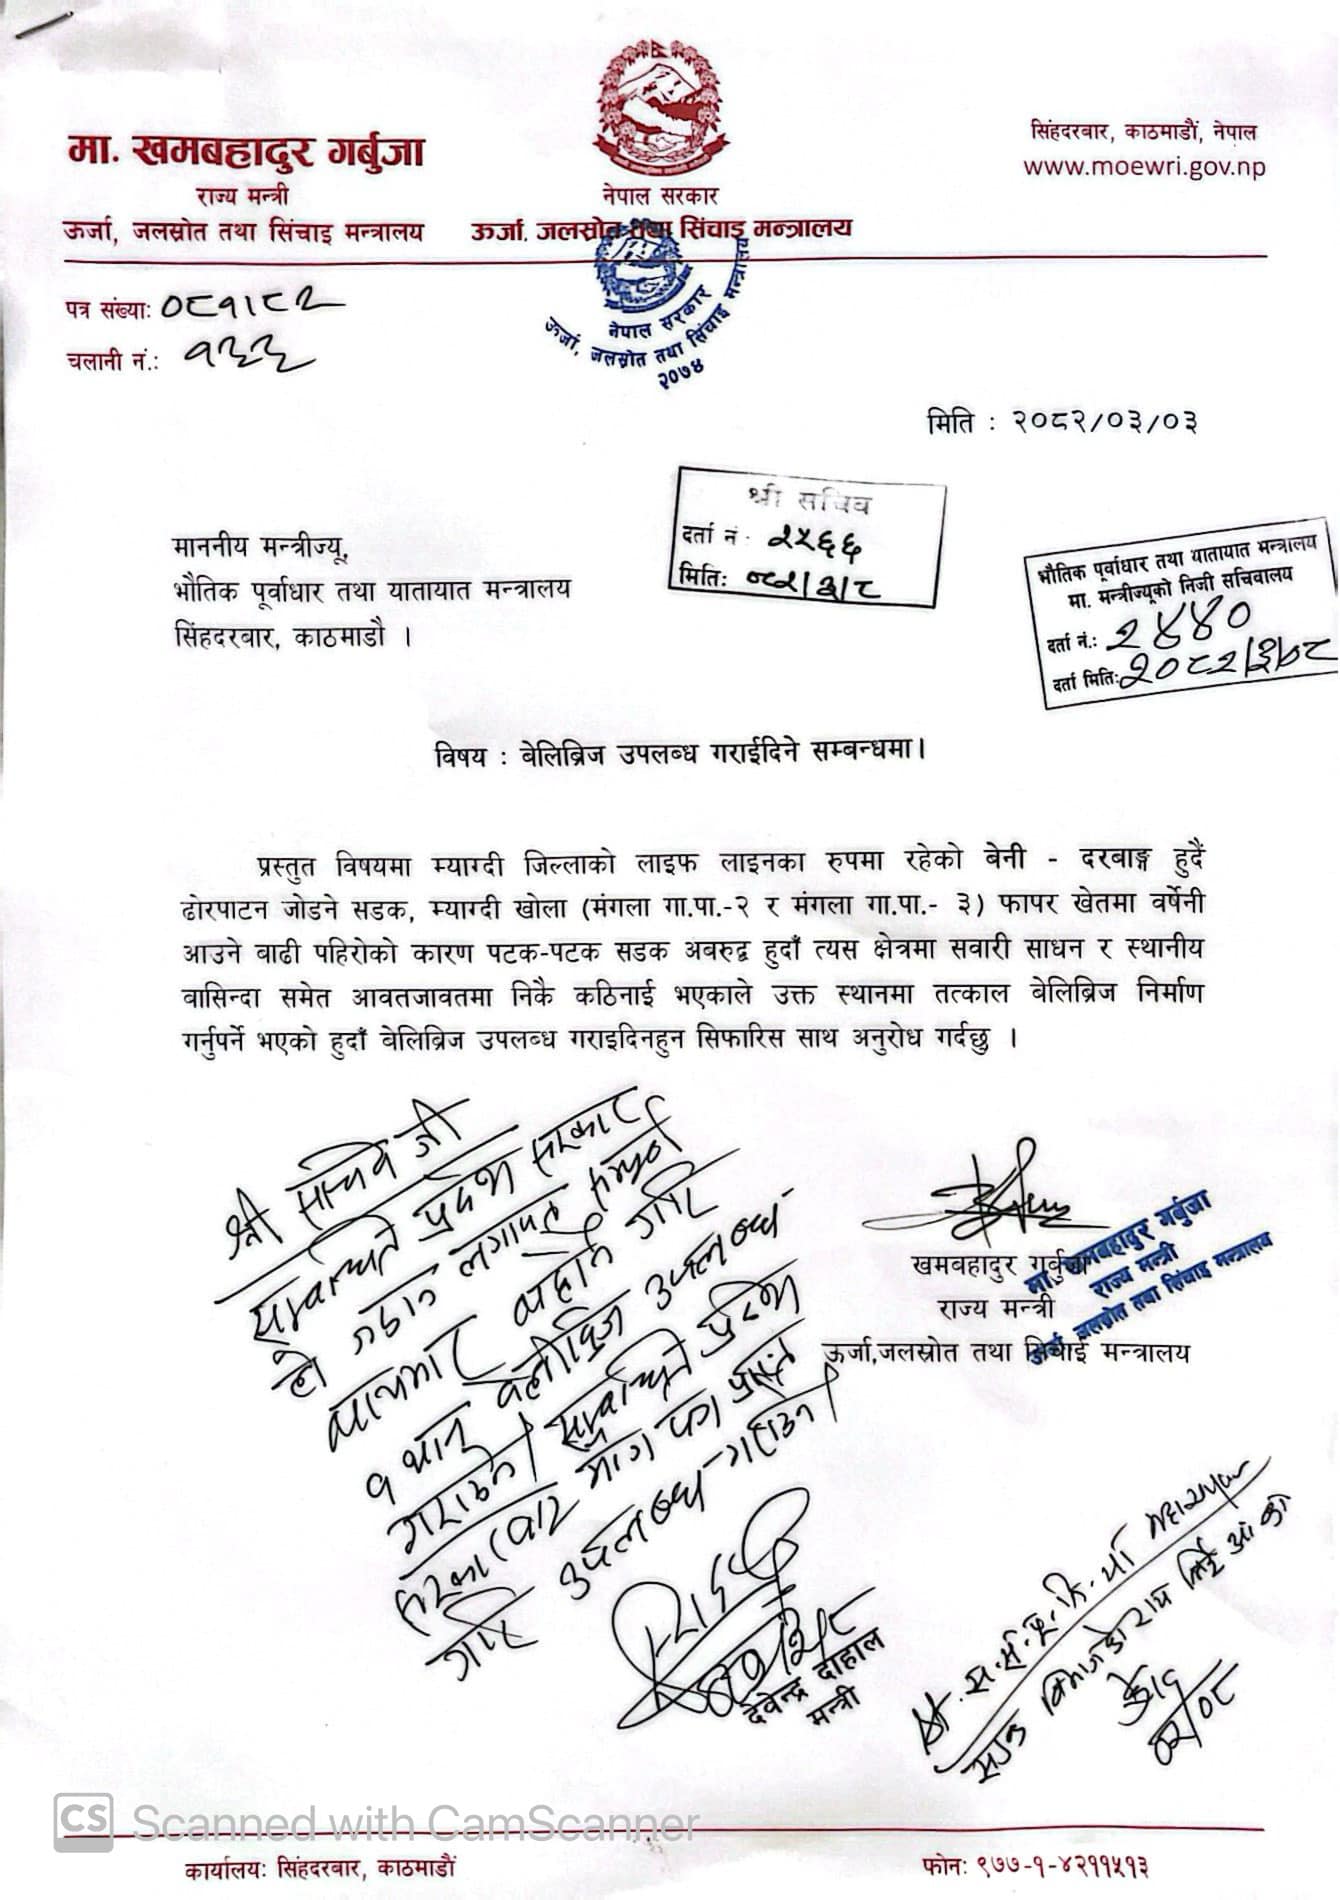 मा. खमबहादुर गर्बुजा
राज्य मन्त्री
ऊर्जा, जलस्रोत तथा सिंचाइ मन्त्रालय
नेपाल सरकार
ऊर्जा, जलस्रोत तथा सिंचाइ मन्त्रालय
सिंहदरबार, काठमाडौं, नेपाल
www.moewri.gov.np
नेपाल सरकार
ऊर्जा, जलस्रोत तथा सिंचाइ मन्त्रालय
२०७४
पत्र संख्या: ०८१।८२
चलानी नं.: १३३
मिति : २०८२/०३/०३
श्री सचिव
दर्ता नं: २५६६
मिति: ०८२।३।८
भौतिक पूर्वाधार तथा यातायात मन्त्रालय
मा. मन्त्रीज्यूको निजी सचिवालय
दर्ता नं.: २४४०
दर्ता मिति: २०८२।३।०८
माननीय मन्त्रीज्यू,
भौतिक पूर्वाधार तथा यातायात मन्त्रालय
सिंहदरबार, काठमाडौ ।
विषय : बेलिब्रिज उपलब्ध गराईदिने सम्बन्धमा।
प्रस्तुत विषयमा म्याग्दी जिल्लाको लाइफ लाइनका रुपमा रहेको बेनी - दरबाङ्ग हुदैं
ढोरपाटन जोडने सडक, म्याग्दी खोला (मंगला गा.पा.-२ र मंगला गा.पा.- ३) फापर खेतमा वर्षेनी
आउने बाढी पहिरोको कारण पटक-पटक सडक अबरुद्व हुदाँ त्यस क्षेत्रमा सवारी साधन र स्थानीय
बासिन्दा समेत आवतजावतमा निकै कठिनाई भएकाले उक्त स्थानमा तत्काल बेलिब्रिज निर्माण
गर्नुपर्ने भएको हुदाँ बेलिब्रिज उपलब्ध गराइदिनहुन सिफारिस साथ अनुरोध गर्दछु ।
श्री सचिव जी
सम्बन्धित प्रदेश सरकार
ले जडान लगायत सम्पूर्ण
व्ययभार व्यहोर्ने गरि
१ थान वेलीब्रिज उपलब्ध
गराउने। सम्बन्धित प्रदेश
सरकारबाट माग पत्र प्राप्त
गरि उपलब्ध गराउन।
देवेन्द्र दाहाल
मन्त्री
खमबहादुर गर्बुजा
राज्य मन्त्री
ऊर्जा,जलस्रोत तथा सिंचाई मन्त्रालय
मा. खमबहादुर गर्बुजा
राज्य मन्त्री
ऊर्जा, जलस्रोत तथा सिंचाइ मन्त्रालय
सडक
CS Scanned with CamScanner
कार्यालय: सिंहदरबार, काठमाडौं
फोन: ९७७-१-४२११५१३